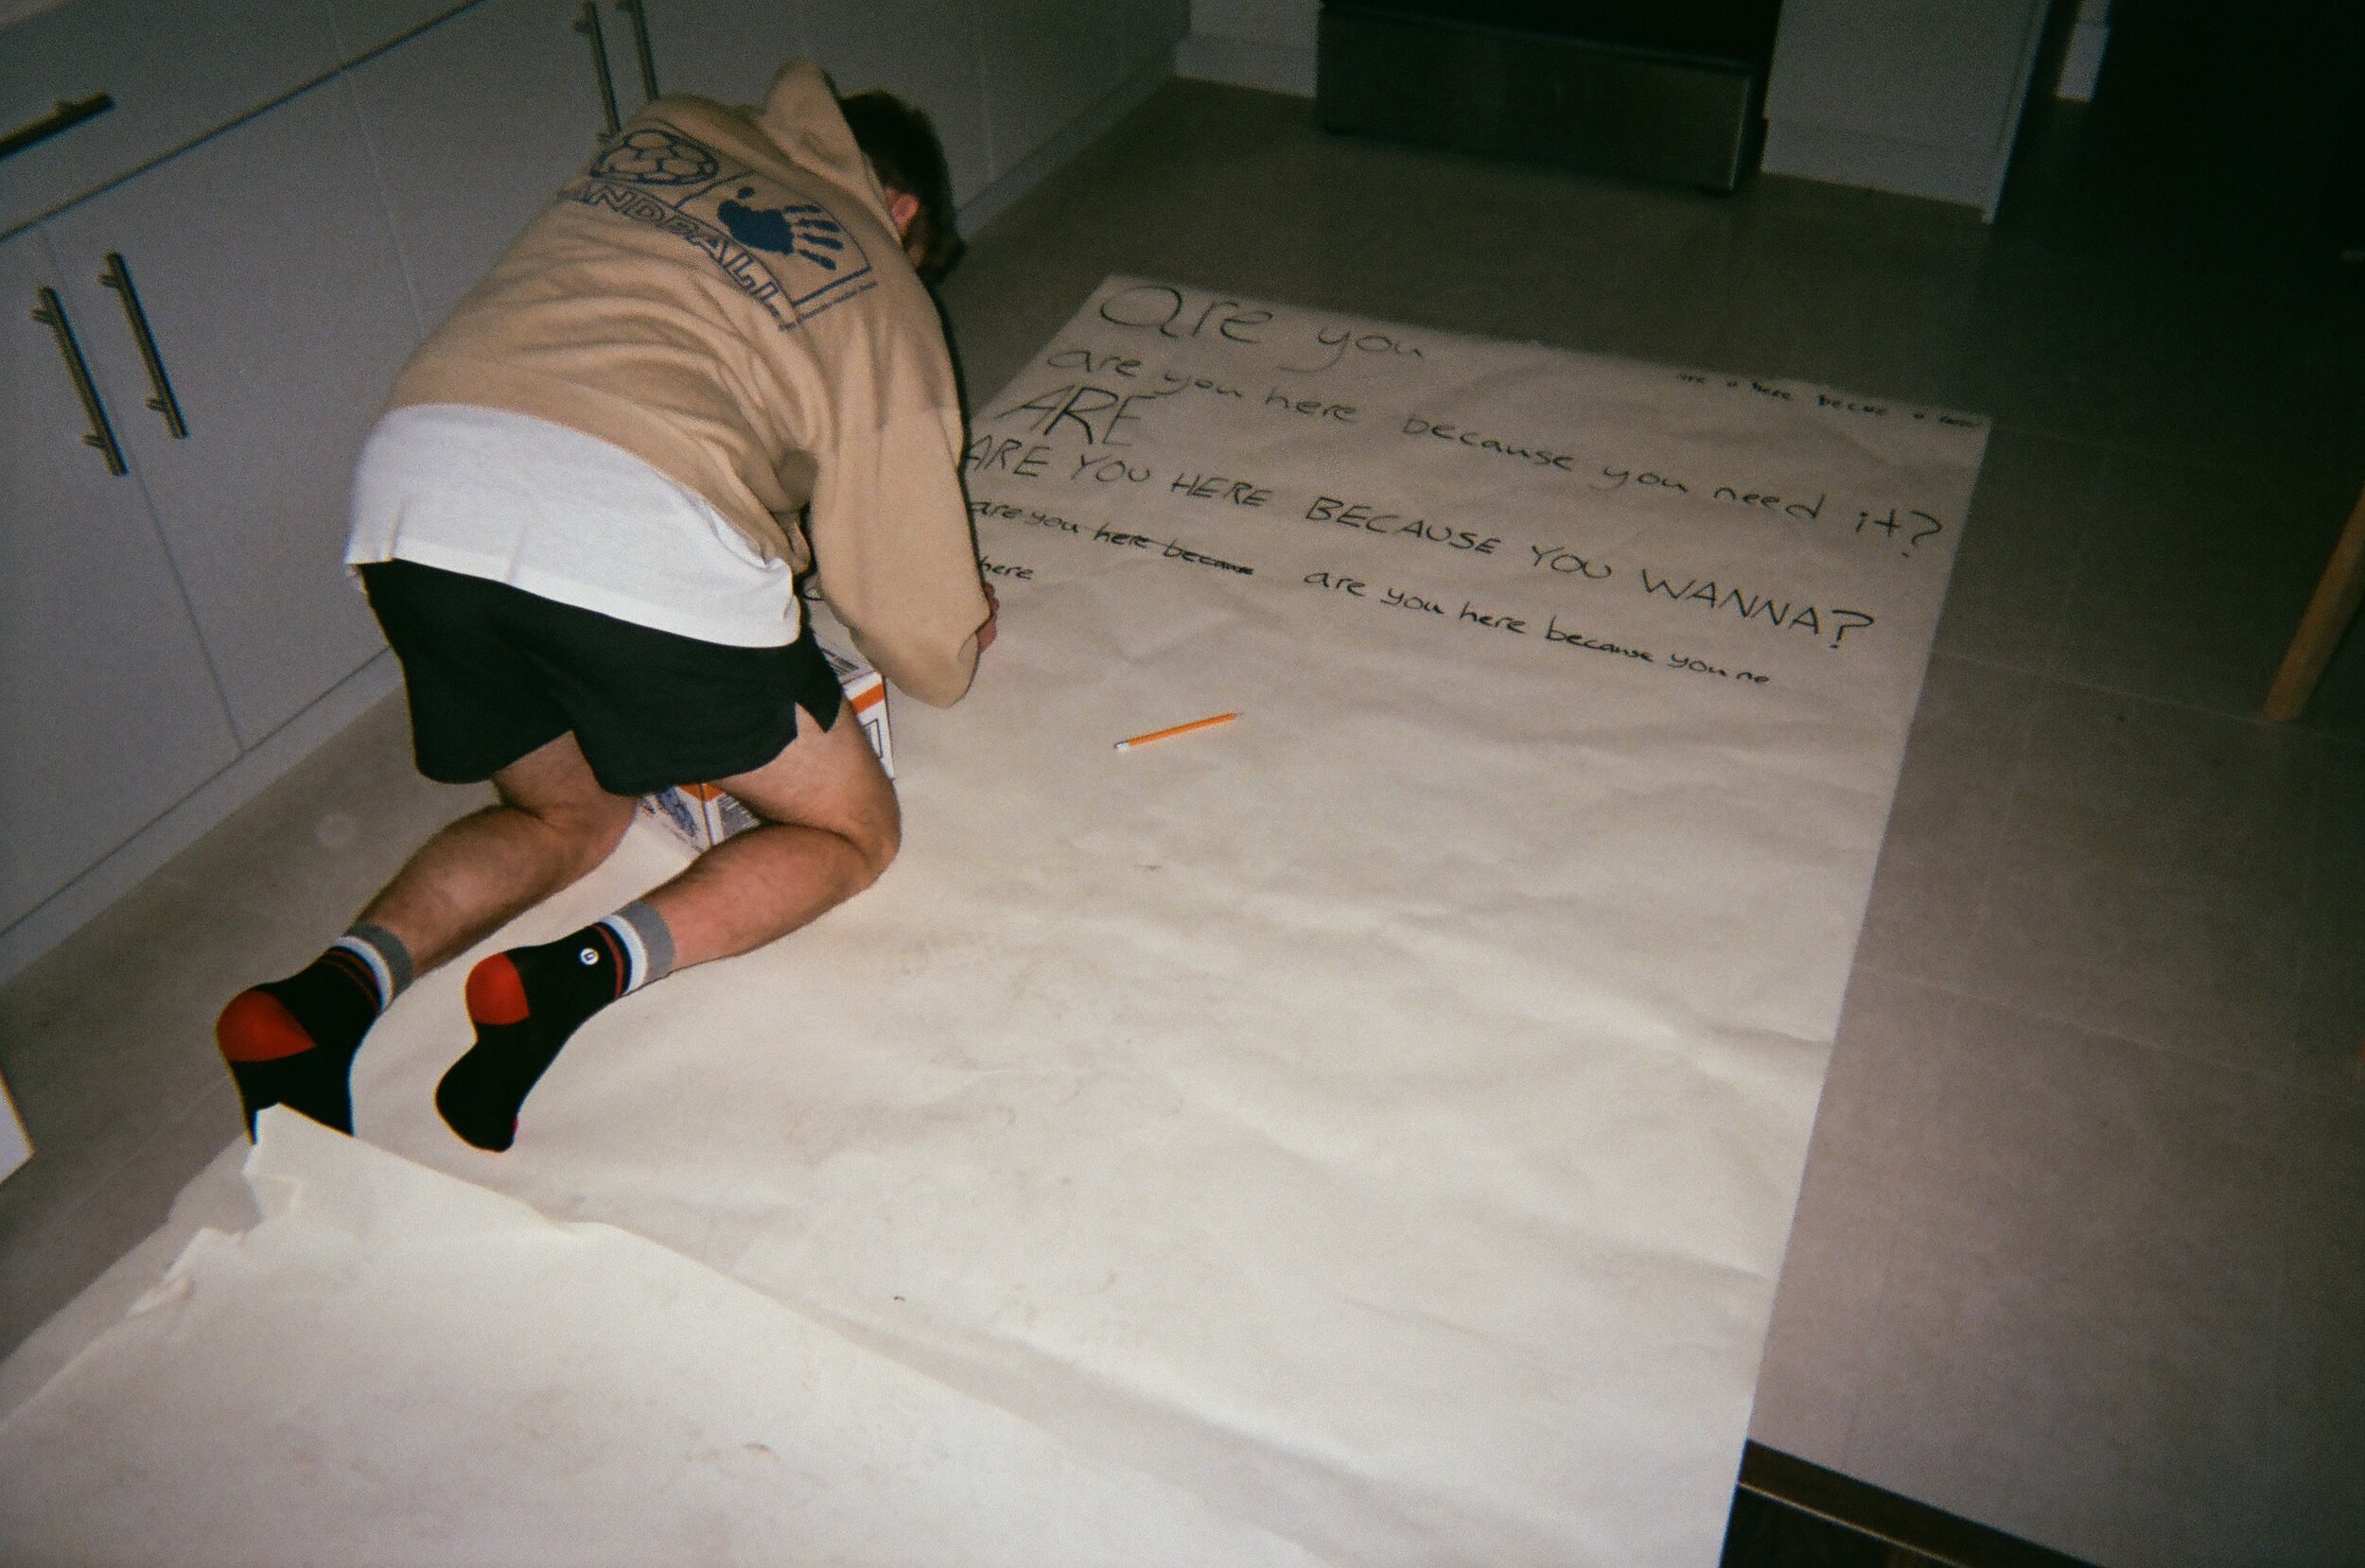 ANDBALL
are you
are you here because you need it?
ARE
ARE YOU HERE BECAUSE YOU WANNA?
are you here because
are you here because you ne
here